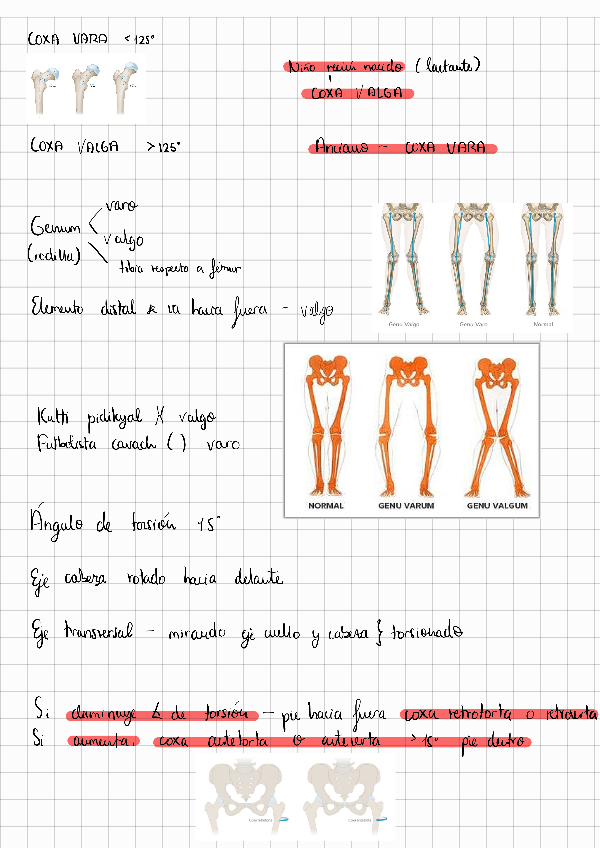 COXA VARA < 125°
Niño recién nacido (lactante)
COXA VALGA
COXA VALGA > 125°
Anciano - COXA VARA
Genum varo
(rodilla) valgo
tibia respecto a fémur
Elemento distal va hacia fuera - valgo
Genu Valgo Genu Varo Normal
X valgo
Futbolista ( ) varo
NORMAL GENU VARUM GENU VALGUM
Ángulo de torsión 15°
Eje cabeza rotado hacia delante
Eje transversal - mirando eje cuello y cabeza } torsionado
Si disminuye ∠ de torsión - pie hacia fuera coxa retrotorta o retroversa
Si aumenta, coxa antetorta o anteverta > 15° pie dentro